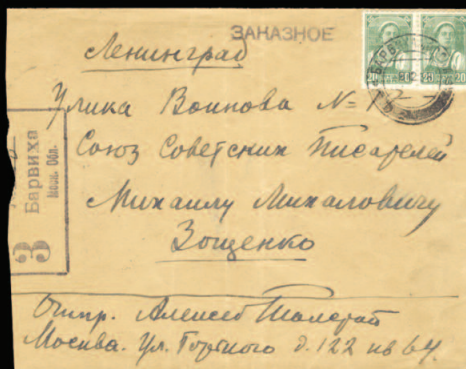 ЗАКАЗНОЕ
Ленинград
Улика Воинова №
Союз Советских Писателей
Михаилу Михаловичу
Зощенко
З
Барвиха
Моск. Обл.
20 20
Отпр. Алексей
Москва. Ул. Горького д. 122 кв 64.